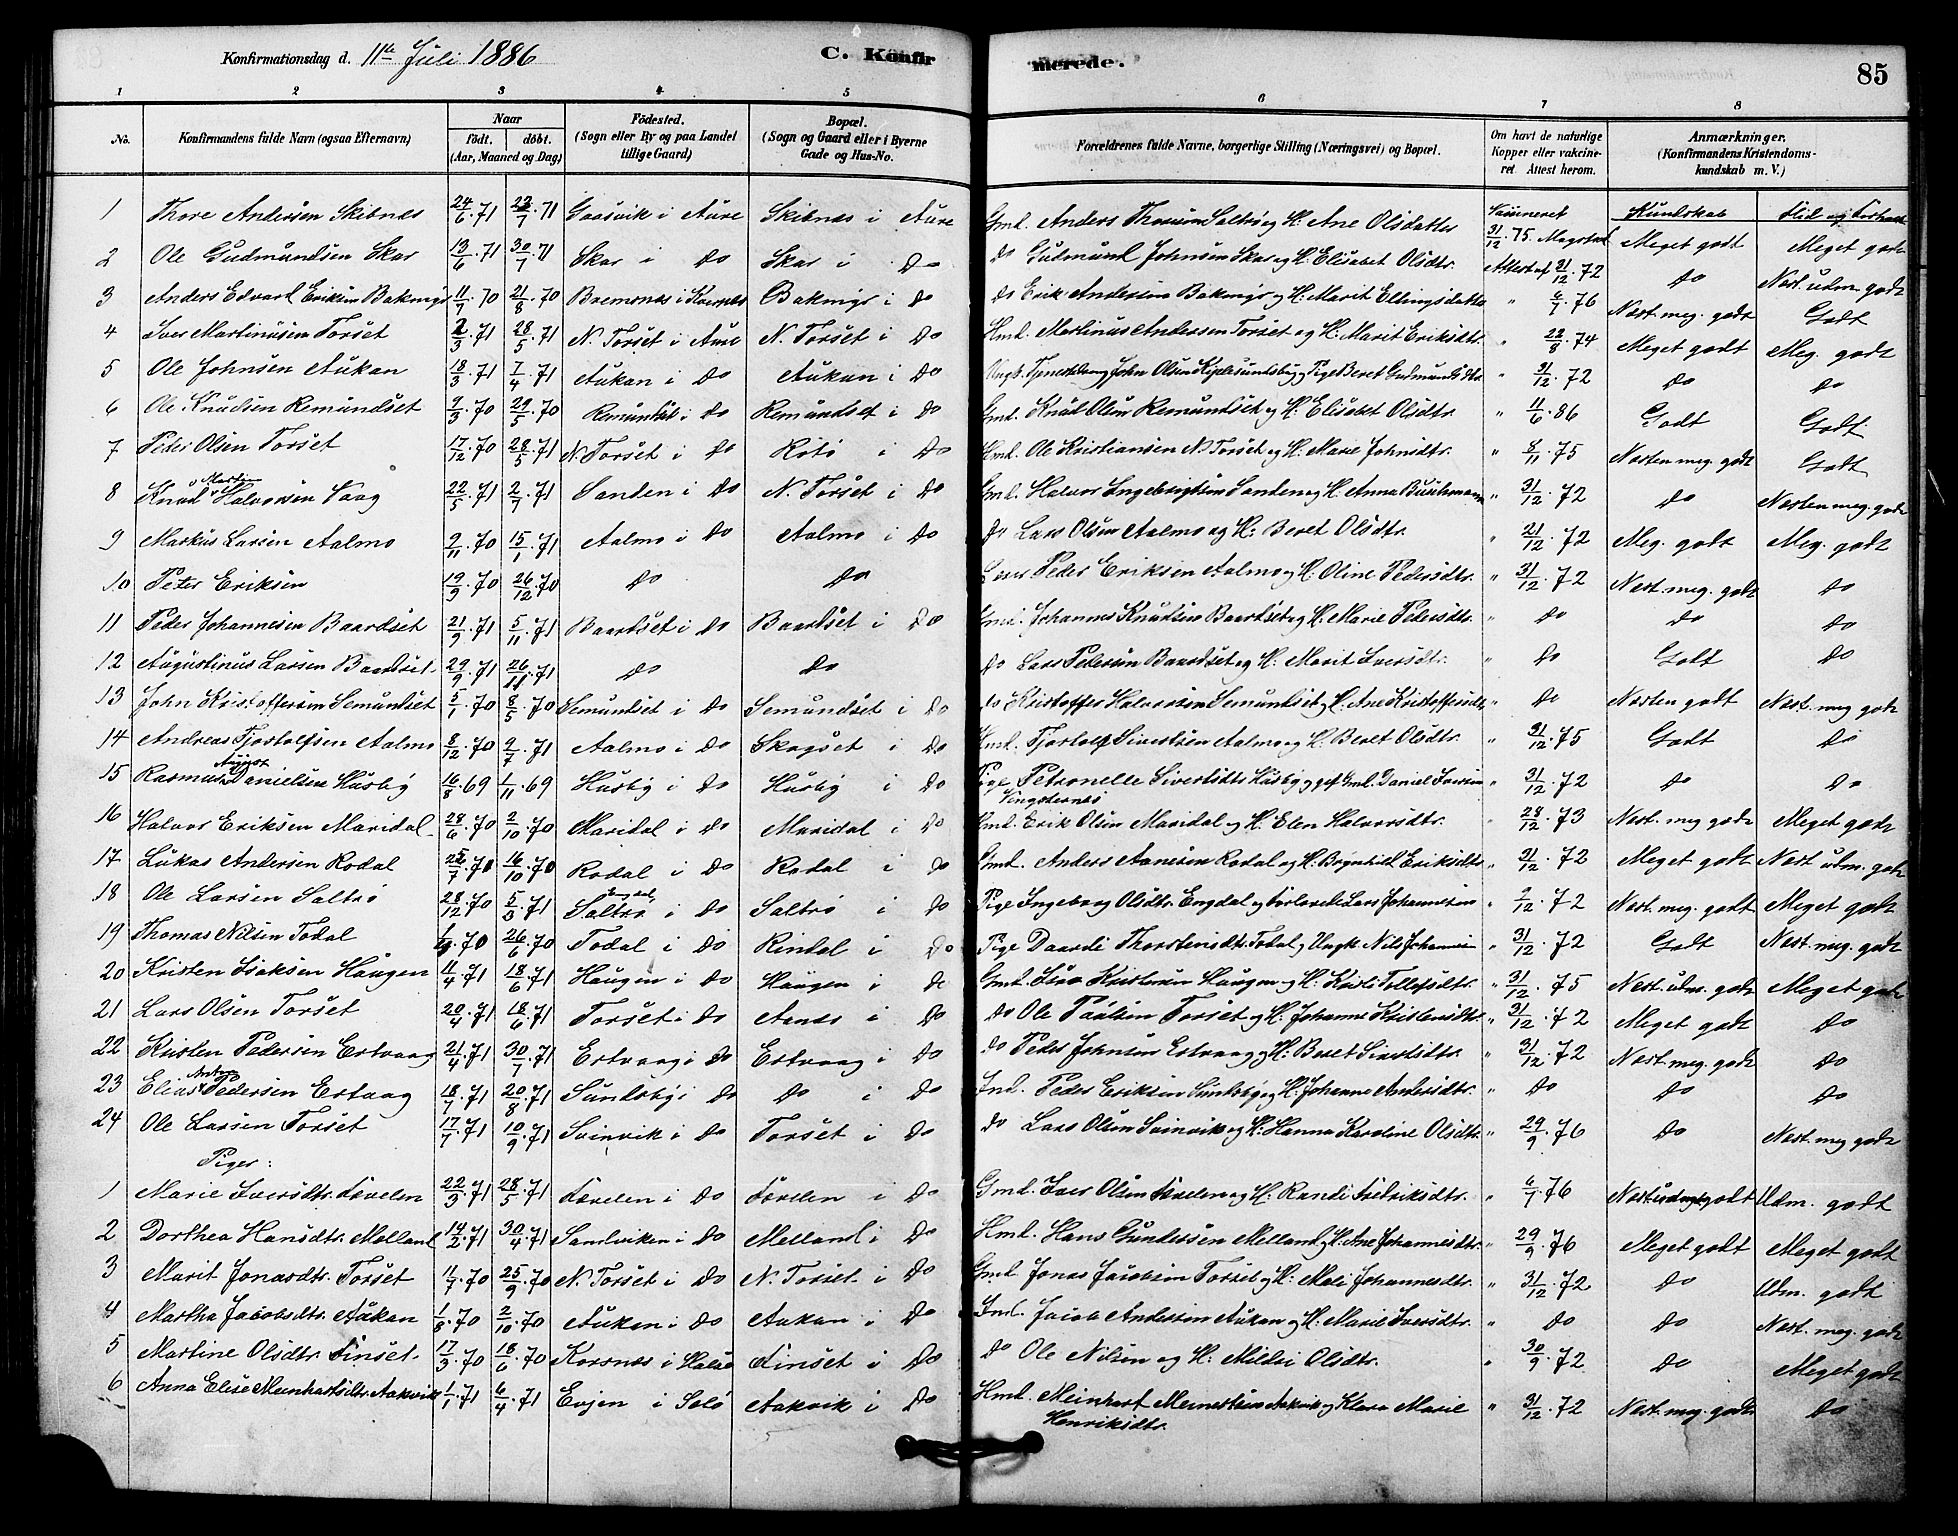 Konfirmationsdag d. 11te Juli 1886 C. Konfirmerede. 85
1 2 3 4 5 6 7 8
No. Konfirmandens fulde Navn (ogsaa Efternavn) Naar födt. döbt. (Aar, Maaned og Dag) Födested. (Sogn eller By og paa Landet tillige Gaard) Bopæl. (Sogn og Gaard eller i Byerne Gade og Hus-No. Forældrenes fulde Navne, borgerlige Stilling (Næringsvei) og Bopæl. Om havt de naturlige Kopper eller vakcineret Attest herom. Anmærkninger. (Konfirmandens Kristendomskundskab m. V.)
Kundskab Flid og Forhold
1 Thore Andersen Skibnes 24/6.71 23/7.71 Gaasvik i Aure Skibnes i Aure Gmd. Anders Saltrö og H: Ane Olsdatter 31/12.75 Meget godt Meget godt
2 Ole Gudmundsen Skar 13/6.71 30/7.71 Skar i Do Skar i Do do Gudmund Johnsen Skar og H: Elisabet Olsdtr. Attest af 31/12.72 do Næst. udm. godt
3 Anders Edvard Eriksen Bakmyr 11/7.70 21/8.70 Bremsnes i Kvernes Bakmyr i do do Erik Andersen Bakmyr og H: Marit Ellingsdatter " 6/7.76 Næst. meg. godt Godt
4 Iver Martinusen Torset 2/3.71 28/5.71 N. Torset i Aure N. Torset i Do Hmd. Martinus Andersen Torset og H: Marit Eriksdtr. " 22/8.74 Meget godt Meg. godt
5 Ole Johnsen Aukan 18/3.71 7/4.71 Aukan i Do Aukan i Do John Olsen Pige Beret Gudmundsdtr " 31/12.72 do do
6 Ole Knudsen Remundset 9/3.70 29/5.70 Remundset i do Remundset i do Gmd. Knud Olsen Remundset og H: Elisabet Olsdtr. " 11/6.86 Godt Godt
7 Peder Olsen Torset 17/12.70 28/5.71 N. Torset i do Rotö i Do Hmd. Ole Kristiansen N. Torset og H: Marie Johnsdtr. " 8/11.75 Næsten meg. godt Godt
8 Knud Martin Halvorsen Vaag 22/5.71 2/7.71 Sanden i do N. Torset i do Gmd. Halvor Ingebrigtsen Sanden og H: Anna Buschmann " 31/12.72 do Næsten meg. godt
9 Markus Larsen Aalmo 9/11.70 15/1.71 Aalmo i do Aalmo i do do Lars Olsen Aalmo og H: Beret Olsdtr. " 21/12.72 Meg. godt Meg. godt
10 Peter Eriksen 19/9.70 26/12.70 do do Peder Eriksen Aalmo og H: Oline Pedersdtr. " 31/12.72 Næst. meg. godt do
11 Peder Johannesen Baardset 21/9.71 5/11.71 Baardset i do Baardset i do Gmd. Johannes Knudsen Baardset og H: Marie Pedersdtr. " do do do
12 Augustinus Larsen Baardset 29/9.71 26/11.71 do do do Lars Pedersen Baardset og H: Marit Iversdtr. " do Godt do
13 John Kristoffersen Semundset 5/1.70 8/5.70 Semundset i do Semundset i do do Kristoffer Halvorsen Semundset og H: Ane Kristoffersdtr " do Næsten godt Næst. meg godt
14 Andreas Tjostolfsen Aalmo 8/12.70 2/7.71 Aalmo i do Skogset i do Hmd. Tjostolf Sivertsen Aalmo og H: Beret Olsdtr. " 31/12.75 Godt do
15 Rasmus August Danielsen Husby 16/8.69 1/11.69 Husby i do Husby i do Pige Petronelle Sivertsdtr Husby og gift Gmd. Daniel Iversen Vingsternes " 31/12.72 do do
16 Halvor Eriksen Maridal 28/6.70 2/10.70 Maridal i do Maridal i do Hmd. Erik Olsen Maridal og H: Elen Halvorsdtr. " 28/12.73 Næst. meg godt Meget godt
17 Lukas Andersen Rodal 25/7.70 16/10.70 Rodal i do Rodal i do Gmd. Anders Aanesen Rodal og H: Brynhild Eriksdtr " 21/12.72 Meget godt Næst udm. godt
18 Ole Larsen Saltrö 28/12.70 5/3.71 Engdal Saltrö i do Saltrö i do Pige Ingeborg Olsdtr. Engdal og Forlovede Lars Johannesen " 2/12.72 Næst. meg. godt Meget godt
19 Thomas Nilsen Todal .70 26/6.70 Todal i do Rindal i Do Pige Daardi Thorstensdtr. Todal og Ungk. Nils Johannesen " 31/12.72 Godt Næst. meg. godt
20 Kristen Isaksen Haugen 11/4.71 18/6.71 Haugen i do Haugen i do Gmd. Isac Kristensen Haugen og H. Kristi Tollefsdtr. " 31/12.75 Næst. udm. godt Meget godt
21 Lars Olsen Torset 20/4.71 18/6.71 Torset i do Aanes i Do do Ole Paulsen Torset og H: Johanne Kristensdtr. " 31/12.72 Meget godt do
22 Kristen Pedersen Ertvaag 21/4.71 30/7.71 Ertvaag i do Ertvaag i do do Peder Johnsen Ertvaag og H: Beret Sivertsdtr. " 31/12.72 Næst. meg. godt do
23 Elias Anton Pedersen Ertvaag 18/7.71 20/8.71 Sundsby i do do i do Ind. Peder Eriksen Sundsby og H: Johanne Andersdtr. " do do do
24 Ole Larsen Torset 17/7.71 10/9.71 Svinvik i do Torset i do do Lars Olsen Svinvik og H: Hanna Karoline Olsdtr. " 29/9.76 do Næst. meg godt
Piger:
1 Marie Iversdtr. Lervelen 22/3.71 28/5.71 i do i do Gmd. Iver Olsen og H: Randi Fredriksdtr. " 6/7.76 Udm. godt
2 Dorthea Hansdtr. Melland 14/2.71 30/4.71 Sandviken i do Melland i do Hmd. Hans Gundersen Melland og H. Ane Johannesdtr. " 29/9.76 Meget godt Meget godt
3 Marit Jonasdtr. Torset 11/7.70 25/9.70 N. Torset i do N. Torset i do Gmd. Jonas Jacobsen Torset og H: Mali Johannesdtr. " 31/12.72 do Udm. godt
4 Martha Jacobsdtr. Aukan 1/8.70 2/10.70 Aukan i do Aukan i do Ind. Jacob Andersen Aukan og H: Marie Iversdtr. " do do Næst. meg. godt
5 Martine Olsdtr. Finset 17/3.70 18/6.70 Korsnes i Halse Finset i do do Ole Nilsen og H: Mildri Olsdtr. " 30/9.72 do Meget godt
6 Anna Elise Meinhartsdtr. Aakvik 1/1.71 6/4.71 Evjen i Aakvik i do Hmd. Meinhart Aakvik og Klara Marie Henriksdtr. " 31/12.72 Næst. meg. godt do